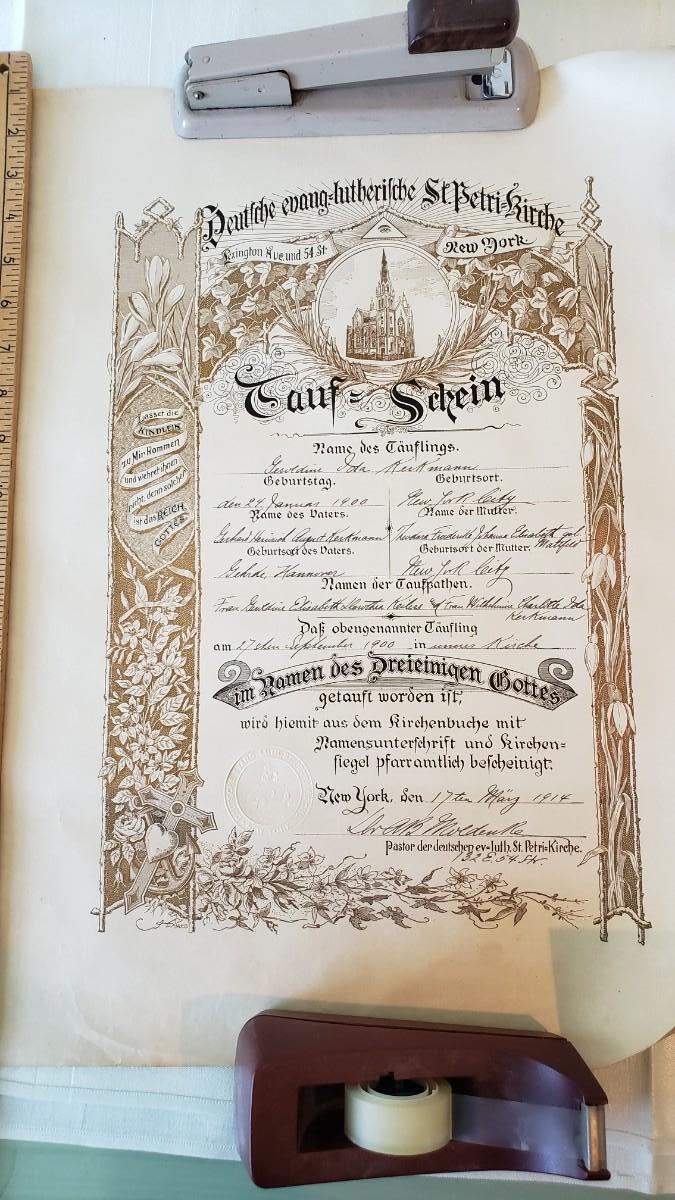 Deutsche evang-lutherische St. Petri-Kirche
Lexington Ave und 54. St.
New York
Tauf-Schein
Lasset die
KINDLEIN
zu Mir Kommen
und wehret ihnen
nicht, denn solcher
ist das REICH
GOTTES
Name des Täuflings.
Geraldine Ida Kerkmann
Geburtstag. Geburtsort.
den 24 Januar 1900 New York City
Name des Vaters. Name der Mutter.
Gerhard Heinrich August Kerkmann Theodora Friederike Johanna Elisabeth geb.
Mattfeld
Geburtsort des Vaters. Geburtsort der Mutter.
Gehrde, Hannover New York City
Namen der Taufpathen.
Frau Elisabeth Dorothea & Frau Wilhelmine Charlotte Ida
Kerkmann
Daß obengenannter Täufling
am 27sten September 1900 in unserer Kirche
im Namen des Dreieinigen Gottes
getauft worden ist,
wird hiemit aus dem Kirchenbuche mit
Namensunterschrift und Kirchen=
siegel pfarramtlich bescheinigt.
New York, den 17ten März 1914
Dr AB Moldenke
Pastor der deutschen ev-luth. St. Petri-Kirche.
132 E. 54 St.
2
3
4
5
6
7
8
9